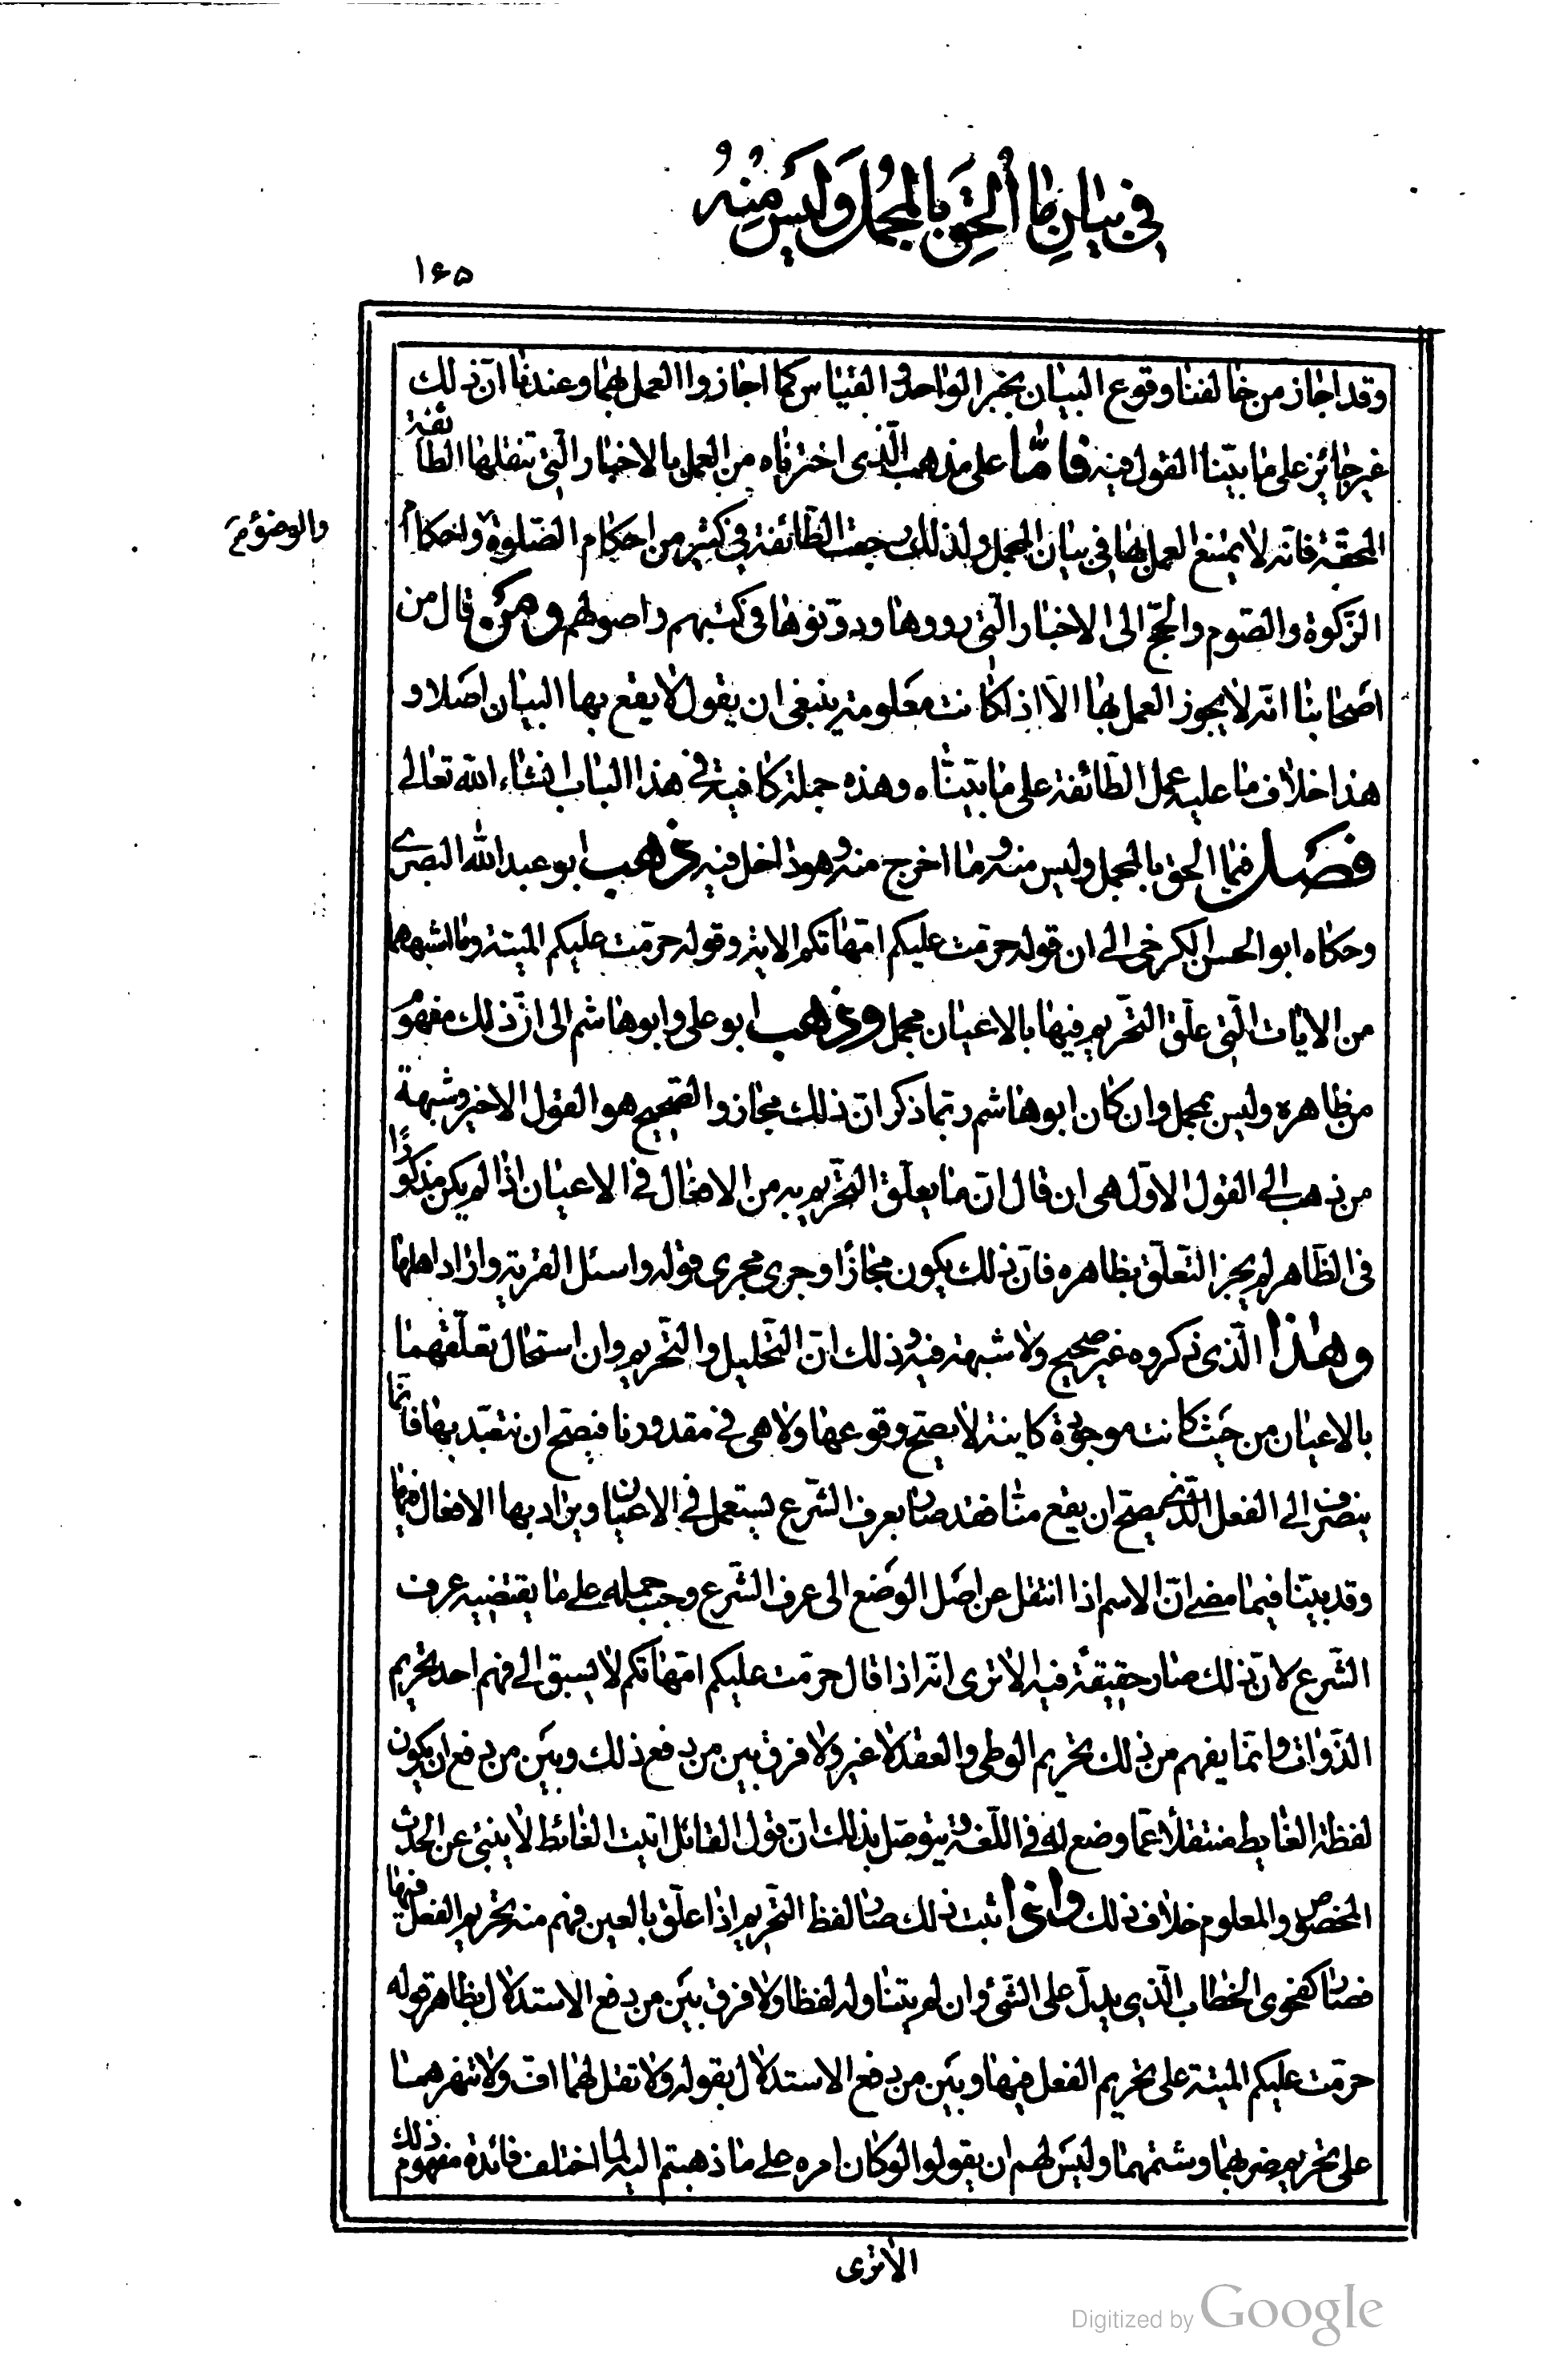 في بيان ما الحق بالمجمل وليس منه
١۶۵
وقد اجاز من خالفنا وقوع البيان بخبر الواحد والقياس كما اجازوا العمل بهما وعندنا ان ذلك
غير جائز على ما بيّنا القول فيه فامّا على مذهب الّذى اخترناه من العمل بالاخبار الّتى تنقلها الطائفة
المحقة فانه لا يمتنع العمل بها في بيان المجمل ولذلك رجعت الطّائفة في كثير من احكام الصّلوة واحكام
والوضوء م
الزّكوة والصّوم والحجّ الى الاخبار الّتى رووها ودوّنوها في كتبهم واصولهم ومن قال من
اصحابنا انّه لا يجوز العمل بها الّا اذا كانت معلومة ينبغى ان يقول لا يقع بها البيان اصلا و
هذا خلاف ما عليه عمل الطّائفة على ما بيّنّاه وهذه جملة كافية في هذا الباب انشاء الله تعالى
فصل فيما الحق بالمجمل وليس منه وما اخرج منه وهو داخل فيه ذهب ابو عبد الله البصرى
وحكاه ابو الحسن الكرخى الى ان قوله حرّمت عليكم امّهاتكم الاية وقوله حرّمت عليكم الميتة وما اشبههما
من الايات الّتى علّق التّحريم فيها بالاعيان مجمل وذهب ابو على وابو هاشم الى انّ ذلك مفهوم
من ظاهره وليس بمجمل وان كان ابو هاشم ربّما ذكر انّ ذلك مجاز والصّحيح هو القول الاخير وشبهة
من ذهب الى القول الاوّل هى ان قال انّ ما يعلّق التّحريم به من الافعال في الاعيان اذا لم يكن مذكورًا
فى الظّاهر لم يجز التّعلّق بظاهره فانّ ذلك يكون مجازًا وجرى مجرى قوله واسئل القرية واراد اهلها
وهذا الّذى ذكروه غير صحيح ولا شبهة فيه وذلك انّ التّحليل والتّحريم وان استحال تعلّقهما
بالاعيان من حيث كانت موجودة كاينة لا يصحّ وقوعها ولا هى في مقدورنا فيصحّ ان نتعبّد بها فانّما
ينصرف الى الفعل الّذى يصحّ ان يقع منّا فقد صار بعرف الشّرع يستعمل في الاعيان ويراد بها الافعال فيها
وقد بيّنّا فيما مضى انّ الاسم اذا انتقل عن اصل الوضع الى عرف الشّرع وجب حمله على ما يقتضيه عرف
الشّرع لانّ ذلك صار حقيقة فيه الا ترى انّه اذا قال حرّمت عليكم امّهاتكم لا يسبق الى فهم احد تحريم
الذّوات وانّما يفهم من ذلك تحريم الوطى والعقد لا غير ولا فرق بين من دفع ذلك وبين من دفع ان يكون
لفظة الغايط منتقلًا عمّا وضع له في اللّغة ويتوصّل بذلك انّ قول القائل اتيت الغائط لا ينبئ عن الحدث
المخصوص والمعلوم خلاف ذلك واذا ثبت ذلك صار لفظ التّحريم اذا علّق بالعين فهم منه تحريم الفعل فيها
فصار كفحوى الخطاب الّذى يدلّ على الشّئ وان لم يتناوله لفظا ولا فرق بين من دفع الاستدلال بظاهر قوله
حرّمت عليكم الميتة على تحريم الفعل فيها وبين من دفع الاستدلال بقوله ولا تقل لهما اف ولا تنهرهما
على تحريم ضربهما وشتمهما وليس لهم ان يقولوا لو كان امره على ما ذهبتم اليه لما اختلف فائدة مفهوم ذلك
الا ترى
Digitized by Google